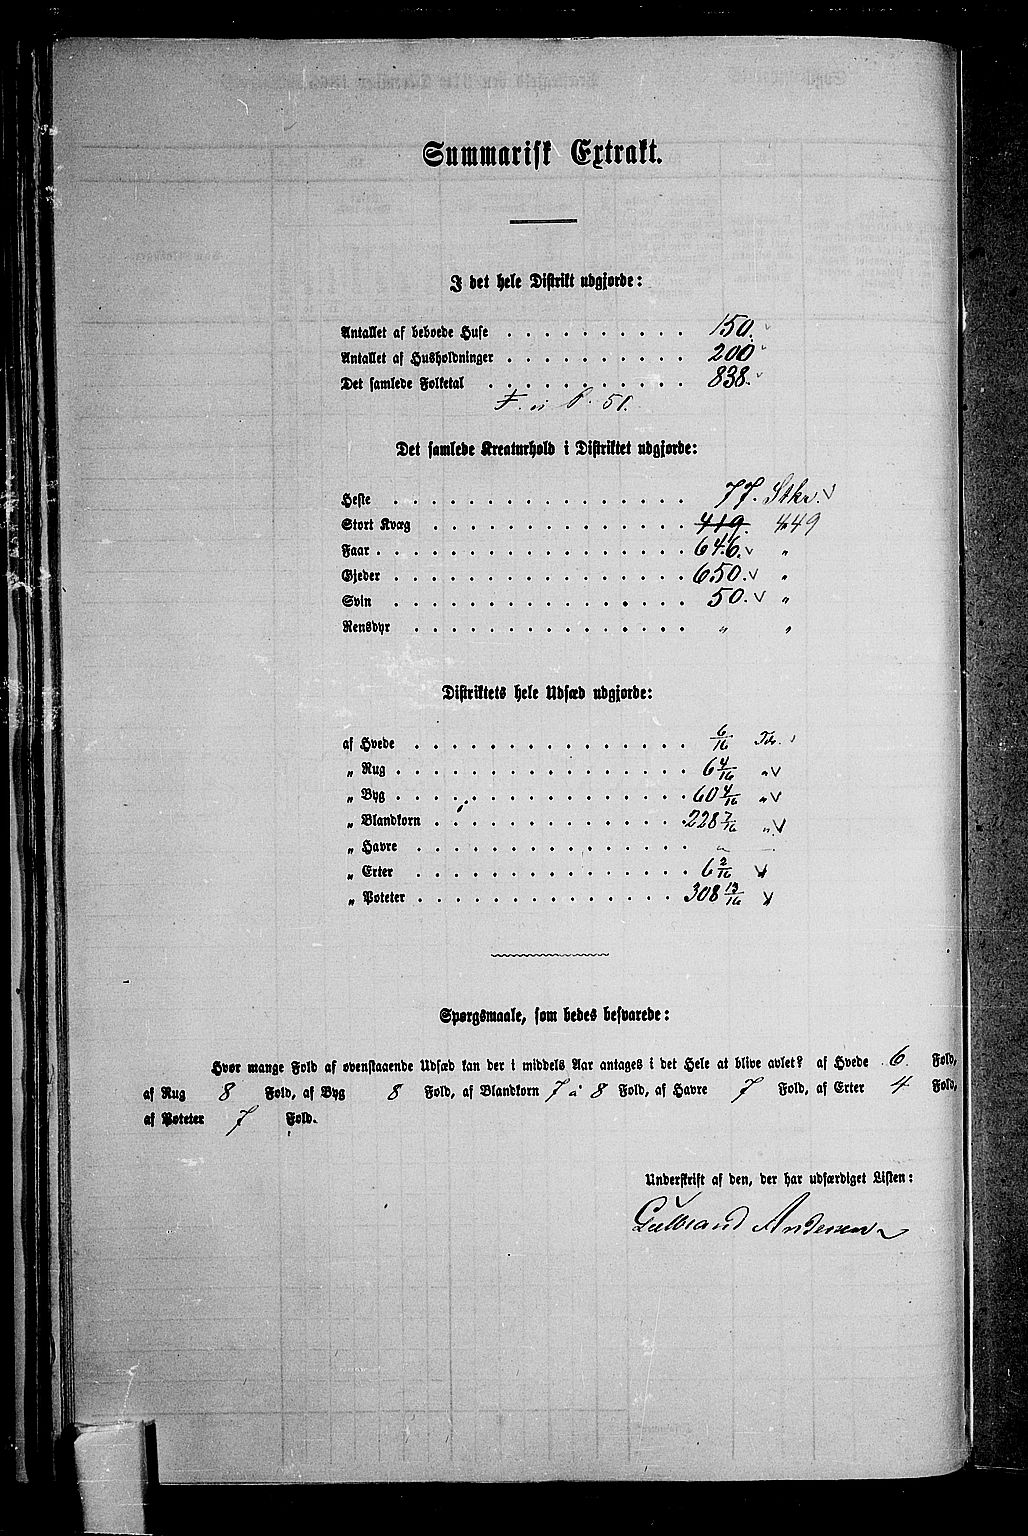 Summarisk Extrakt.
I det hele Distrikt udgjorde:
Antallet af beboede Huse . . . . . . . . . . 150.
Antallet af Husholdninger . . . . . . . . . . 200
Det samlede Folketal . . . . . . . . . . . 838.
51.
Det samlede Kreaturhold i Distriktet udgjorde:
Heste . . . . . . . . . . . . . . . . 77. Stkr.
Stort Kvæg . . . . . . . . . . . . . . 419. 449
Faar . . . . . . . . . . . . . . . . . 646. "
Gjeder . . . . . . . . . . . . . . . . 650. "
Svin . . . . . . . . . . . . . . . . 50. "
Rensdyr . . . . . . . . . . . . . . . " "
Distriktets hele Udsæd udgjorde:
af Hvede . . . . . . . . . . . . . . . 6/16 Tdr.
" Rug . . . . . . . . . . . . . . . . 6 4/16 "
" Byg . . . . . . . . . . . . . . . . 60 4/16 "
" Blandkorn . . . . . . . . . . . . . . 228 7/16 "
" Havre . . . . . . . . . . . . . . . "
" Erter . . . . . . . . . . . . . . . 6 2/16 "
" Poteter . . . . . . . . . . . . . . 308 13/16 "
Spørgsmaale, som bedes besvarede:
Hvor mange Fold af ovenstaaende Udsæd kan der i middels Aar antages i det Hele at blive avlet? af Hvede 6. Fold,
af Rug 8 Fold, af Byg 8 Fold, af Blandkorn 7 à 8 Fold, af Havre 7 Fold, af Erter 4 Fold,
af Poteter 7 Fold.
Underskrift af den, der har udfærdiget Listen:
Gulbrand Andersen